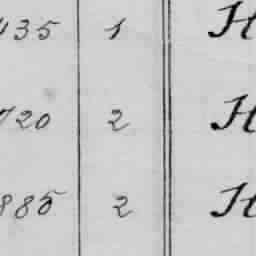 435 1 H
720 2 H
885 2 H